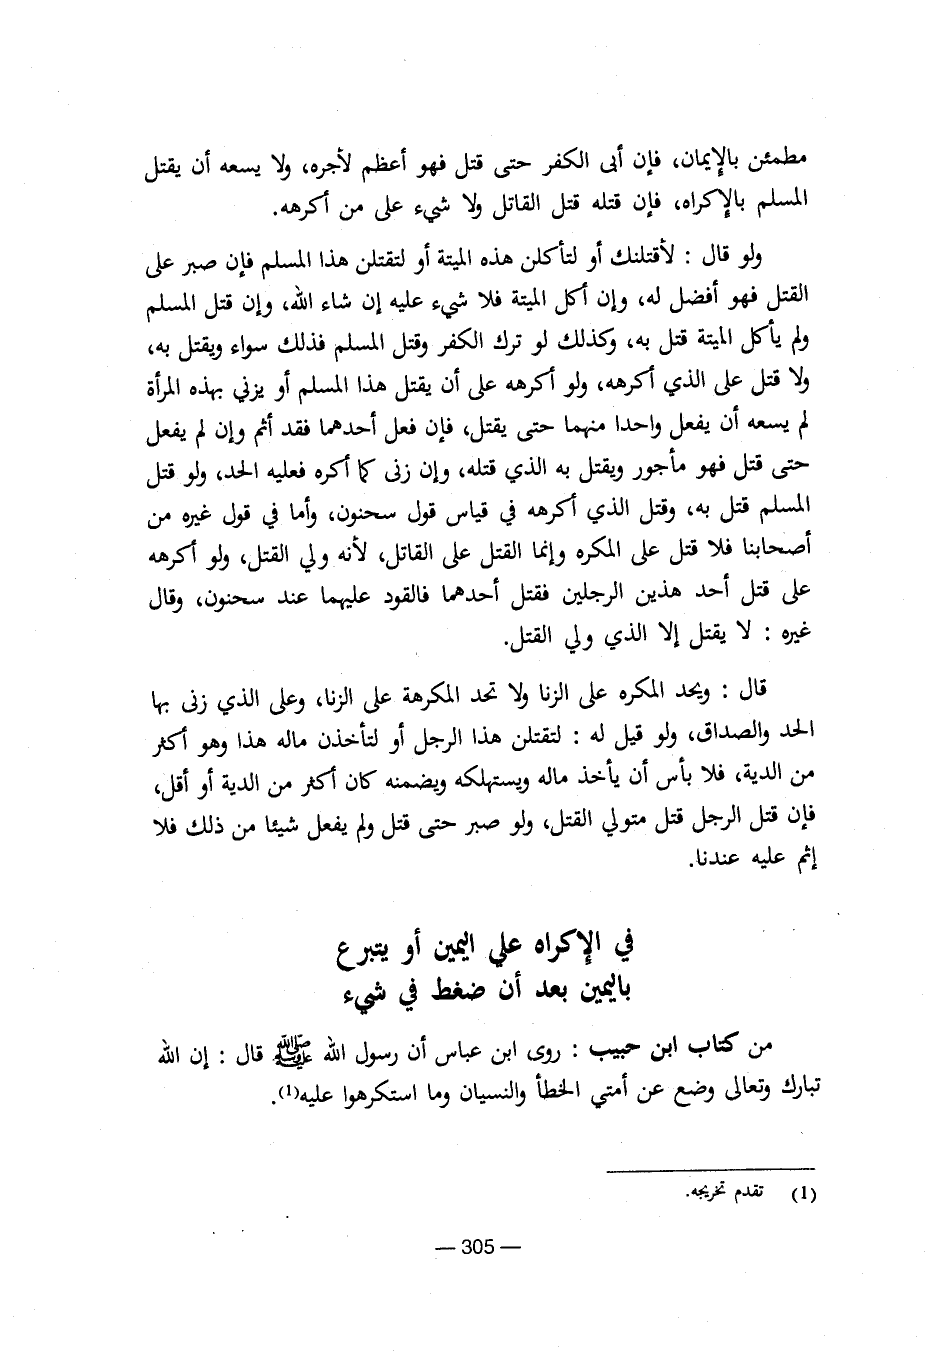 مطمئن بالإيمان، فإن أبى الكفر حتى قتل فهو أعظم لأجره، ولا يسعه أن يقتل
المسلم بالإكراه، فإن قتله قتل القاتل ولا شيء على من أكرهه.
ولو قال : لأقتلنك أو لتأكلن هذه الميتة أو لتقتلن هذا المسلم فإن صبر على
القتل فهو أفضل له، وإن أكل الميتة فلا شيء عليه إن شاء الله، وإن قتل المسلم
ولم يأكل الميتة قتل به، وكذلك لو ترك الكفر وقتل المسلم فذلك سواء ويقتل به،
ولا قتل على الذي أكرهه، ولو أكرهه على أن يقتل هذا المسلم أو يزني بهذه المرأة
لم يسعه أن يفعل واحدا منهما حتى يقتل، فإن فعل أحدهما فقد أثم وإن لم يفعل
حتى قتل فهو مأجور ويقتل به الذي قتله، وإن زنى كما أكره فعليه الحد، ولو قتل
المسلم قتل به، وقتل الذي أكرهه في قياس قول سحنون، وأما في قول غيره من
أصحابنا فلا قتل على المكره وإنما القتل على القاتل، لأنه ولي القتل، ولو أكرهه
على قتل أحد هذين الرجلين فقتل أحدهما فالقود عليهما عند سحنون، وقال
غيره : لا يقتل إلا الذي ولي القتل.
قال : ويحد المكره على الزنا ولا تحد المكرهة على الزنا، وعلى الذي زنى بها
الحد والصداق، ولو قيل له : لتقتلن هذا الرجل أو لتأخذن ماله هذا وهو أكثر
من الدية، فلا بأس أن يأخذ ماله ويستهلكه ويضمنه كان أكثر من الدية أو أقل،
فإن قتل الرجل قتل متولي القتل، ولو صبر حتى قتل ولم يفعل شيئا من ذلك فلا
إثم عليه عندنا.
في الإكراه علي اليمين أو يتبرع
باليمين بعد أن ضغط في شيء
من كتاب ابن حبيب : روى ابن عباس أن رسول الله ﷺ قال : إن الله
تبارك وتعالى وضع عن أمتي الخطأ والنسيان وما استكرهوا عليه(1).
(1) تقدم تخريجه.
— 305 —